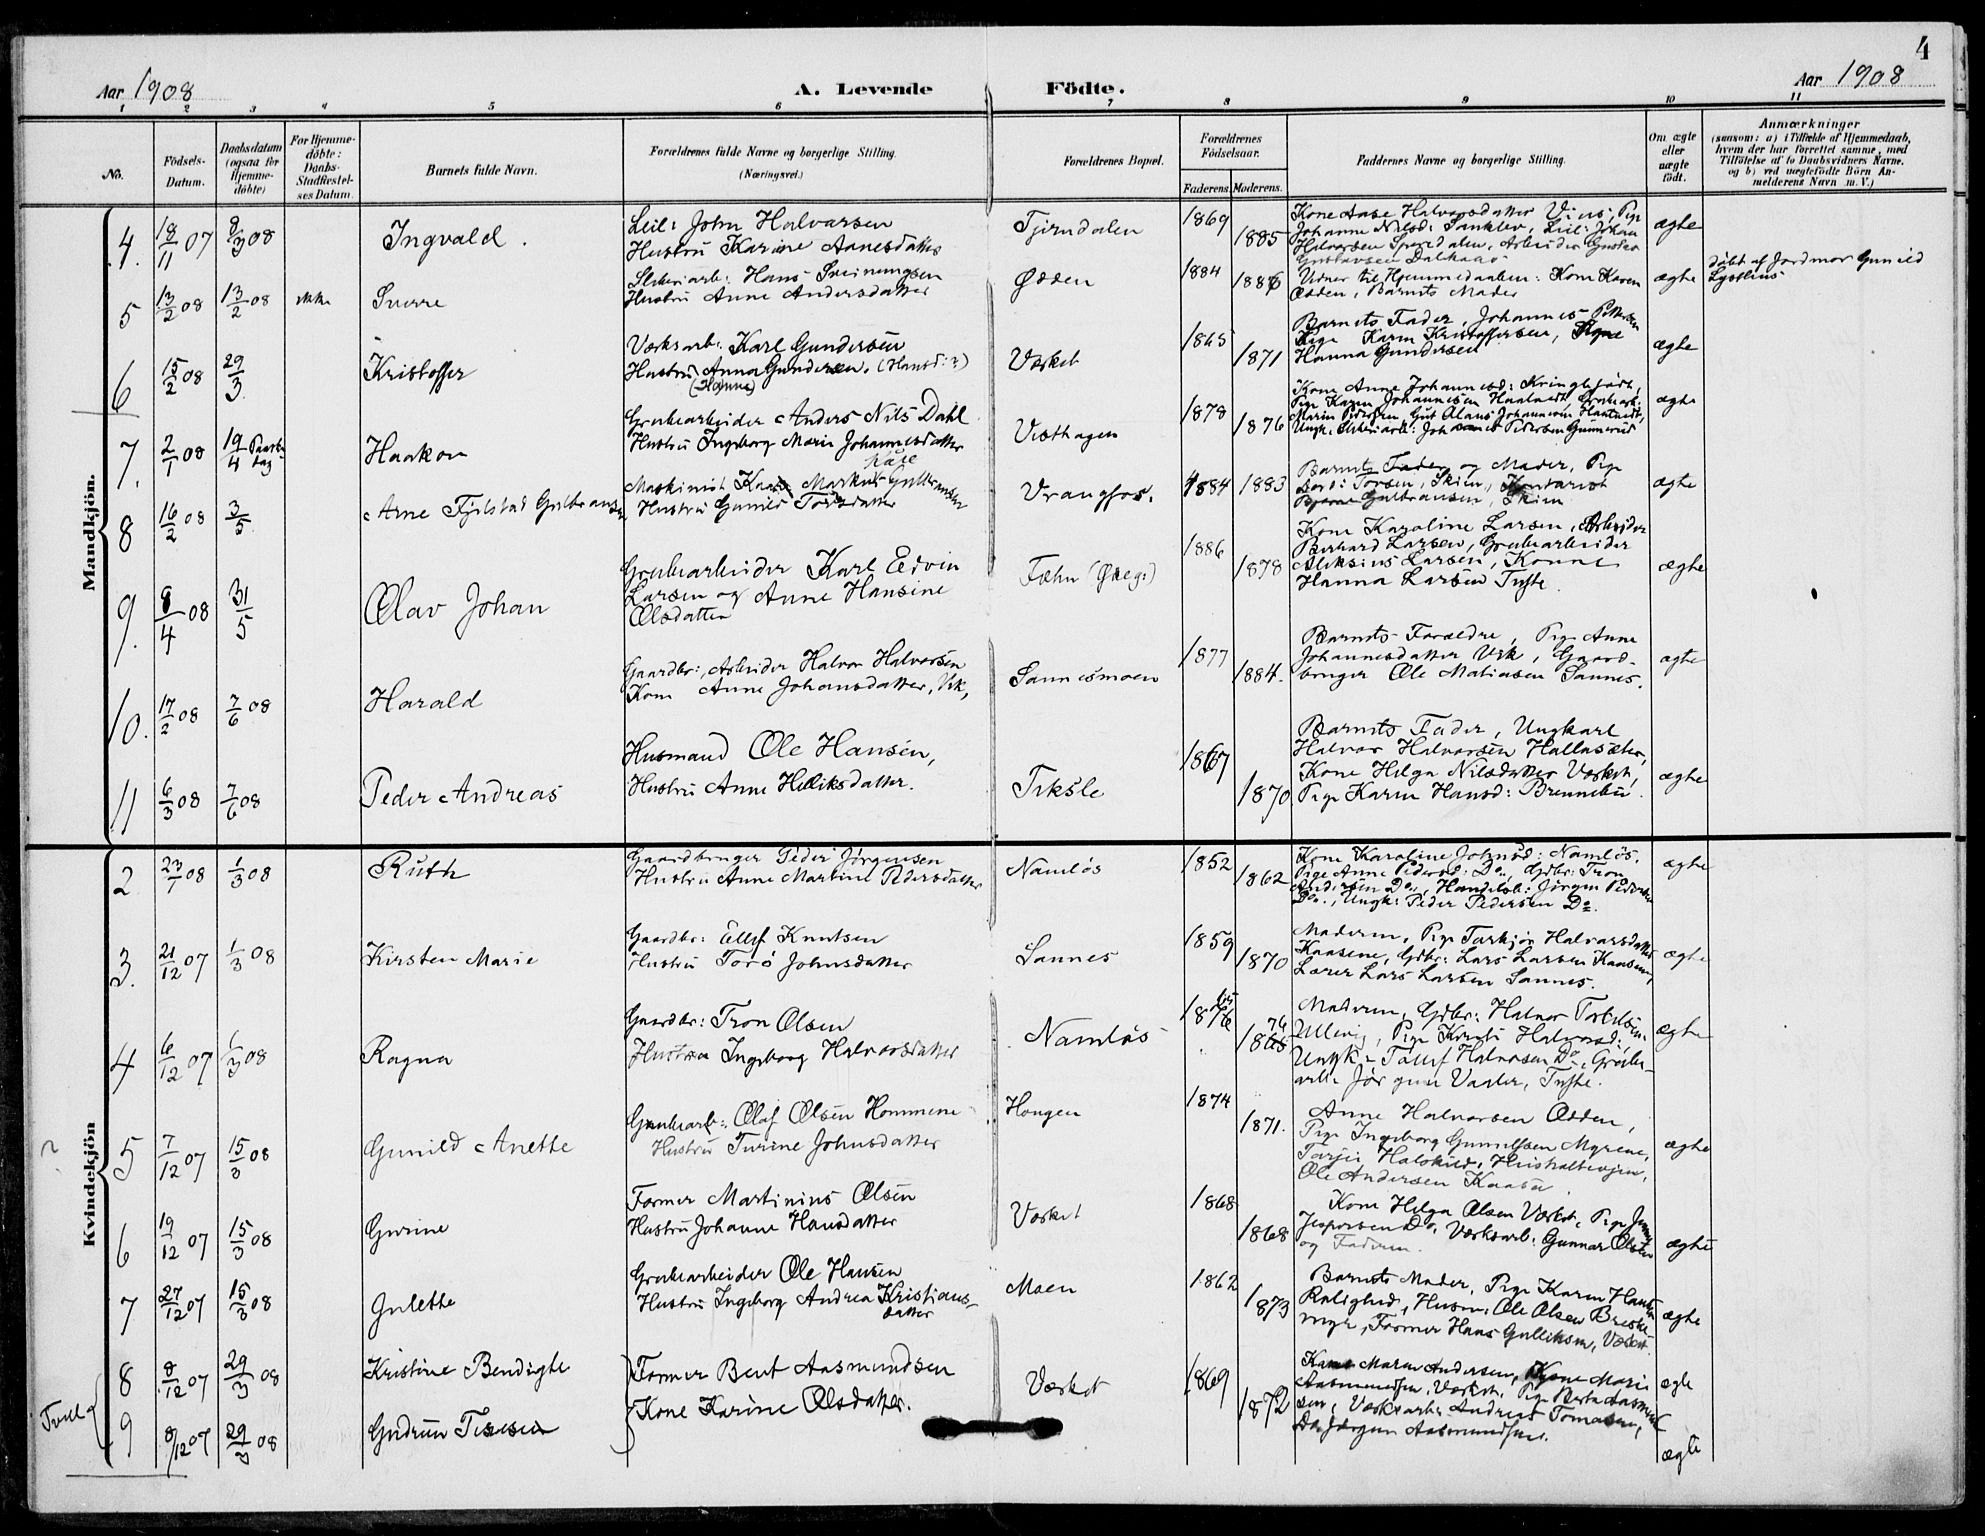 4
Aar 1908
A. Levende
Födte.
Aar 1908
1 2 3 4 5 6 7 8 9 10 11
No.
Födsels-Datum.
Daabsdatum (ogsaa for Hjemme-döbte)
For Hjemme-döbte: Daabs-Stadfæstel-ses Datum.
Barnets fulde Navn.
Forældrenes fulde Navne og borgerlige Stilling.
(Næringsvei.)
Forældrenes Bopæl.
Forældrenes Födselsaar.
Faderens. Moderens.
Faddernes Navne og borgerlige Stilling.
Om ægte eller uægte födt.
Anmærkninger
(saasom: a) i Tilfælde af Hjemmedaab, hvem der har forrettet samme, med Tilföielse af to Daabsvidners Navne. og b) ved uægtefödte Börn An-melderens Navn m. V.)
Mandkjön.
4. 18/11 07 8/3 08 Ingvald.
Leil: John Halvorsen
Hustru Karine Aanesdatter
Tjerndalen 1869 1885
Kone Aase Halvorsdatter
Johanne Nilsd: Leil: Johan
Halvorsen Arbeider Gustav
Gustavsen
ægte
5 13/2 08 13/2 08 ikke Sverre
Hans Sveinungsen
Hustru Anne Andersdatter
Odden 1884 1886
Vidner til Hjemmedaaben: Kone Karen
Odden, Barnets Moder
ægte
döbt af Jordmor Gunild
6 15/2 08 29/3 Kristoffer
Værksarb: Karl Gundersen
Hustru Anna Gundersen. (Hansd:?)
(Hanna)
Værket 1865 1871
Barnets Fader, Johannes Pettersen
Karen Kristoffersen,
Hanna Gundersen
ægte
7. 2/1 08 19/4 Paaske-dag Haakon
Grubearbeider Anders Nils Dahl
Hustru Ingeborg Marie Johannesdatter
Vesthagen 1878 1876
Kone Anne Johannesd:
Pige Karen Johannesen
Marin Pedersen, Gut Olaus Johannesen
Ungk: Johannes Pedersen Gunnerud
ægte
8 16/2 08 3/5 Arne Fjeldstad Gulbransen
Kåre
Maskinist Markus Gulbransen
Hustru Gunild Torsdatter
Vrangfos. 1884 1883
Barnets Fader og Moder, Pige
Torsen, Skien, Kontorist
Bjarne Gulbransen, Skien
ægte
9. 8/4 08 31/5 Olav Johan
Grubearbeider Karl Edvin
Larsen og Anne Hansine
Olsdatter
Fæhn 1886 1878
Kone Karoline Larsen, Arbeider
Berhard Larsen, Grubearbeider
Aleksius Larsen, Kone
Hanna Larsen Tufte.
ægte
10. 17/2 08 7/6 08 Harald
Gaardbr:, Arbeider Halvor Halvorsen
Kone Anne Johansdatter, Vik,
Sannesmoen 1877 1884.
Barnets Forældre, Pige Anne
Johannesdatter Vik, Gaard-
bruger Ole Matiasen Sannes.
ægte
11 6/3 08 7/6 08 Peder Andreas
Husmand Ole Hansen,
Hustru Anne Helliksdatter.
Teksle 1867 1870
Barnets Fader, Ungkarl
Halvor Halvorsen Hallasæter,
Kone Helga Nilsdatter Værket,
Pige Karen Hansd: Brennebu.
ægte
Kvindekjön
2 23/1 08 1/3 08 Ruth
Gaardbruger Peder Jörgensen
Hustru Anne Martine Pedersdatter
Namlös 1852 1862
Kone Karoline Johnsd: Namlös,
Pige Anne Pedersd: Do., Gdbr: Tron
Andersen Do., Handelsb: Jörgen Pedersen
Do., Ungk: Peder Pedersen Do.
ægte
3. 21/12 07 1/3 08 Kirsten Marie
Gaardbr: Ellef Knutsen
Hustru Toro Johnsdatter
Sannes 1859 1870
Moderen, Pige Torbjör Halvorsdatter
Kaasene, Gdbr: Lars Larsen Kaasene,
Lærer Lars Larsen Sannes.
ægte
4 6/12 07 1/3 08 Ragna
Gaardbr: Tron Olsen
Hustru Ingeborg Halvorsdatter
Namlös
Moderen, Gdbr: Halvor Torbilsen
Ullevig, Pige Kirsti Halvorsd:
Ungk: Tollef Halvorsen Do., Grube-
arb: Jörgen Vader, Tufte.
ægte
5 7/12 07 15/3 08 Gunild Anette
Grubearb: Olaf Olsen Hommene
Hustru Turine Johnsdatter
Haugen 1874 1871.
Anne Halvorsen Odden,
Pige Ingeborg Gunulfsen Myrene,
Tarjei Halskild,
Ole Andersen Kaasa.
ægte
6 19/12 07 15/3 08 Gurine
Former Martinius Olsen
Hustru Johanne Hansdatter
Værket 1868 1868
Kone Helga Olsen Værket, Pige Jenny
Jespersen Do. Værksarb: Gunnar Olsen
og Faderen.
ægte
7 27/12 07 15/3 08 Gulette
Grubearbeider Ole Hansen
Hustru Ingeborg Andrea Kristians-
datter
Moen 1862 1873
Barnets Moder, Pige Karen Hansen
Rolighed, Husm: Ole Olsen Breske-
myr, Former Hans Gulliksen, Værket.
ægte
Tvill.
8 8/12 07 29/3 08 Kristine Bendigte
9 8/12 07 29/3 08 Gudrun
Former Bent Aasmundsen
Kone Karine Olsdatter.
Værket 1869 1872
Maren Andersen, Marie
Aasmundsen, Værket, Pige Berta Aasmund-
sen, Værksarb: Andreas Tomasen,
Do. Jörgen Aasmundsen.
ægte
ægte